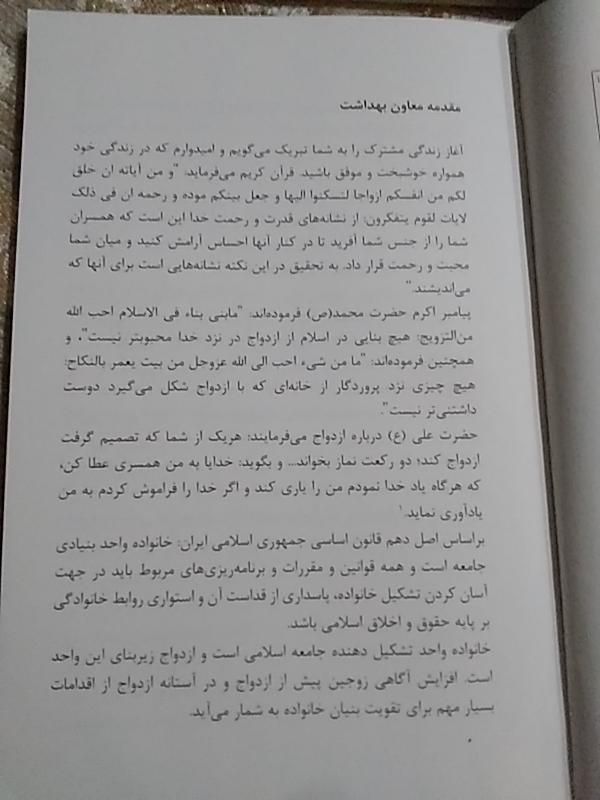 مقدمه معاون بهداشت
آغاز زندگی مشترک را به شما تبریک می‌گویم و امیدوارم که در زندگی خود
همواره خوشبخت و موفق باشید. قرآن کریم می‌فرماید: "و من آیاته ان خلق
لکم من انفسکم ازواجا لتسکنوا الیها و جعل بینکم موده و رحمه ان فی ذلک
لایات لقوم یتفکرون: از نشانه‌های قدرت و رحمت خدا این است که همسران
شما را از جنس شما آفرید تا در کنار آنها احساس آرامش کنید و میان شما
محبت و رحمت قرار داد. به تحقیق در این نکته نشانه‌هایی است برای آنها که
می‌اندیشند."
پیامبر اکرم حضرت محمد(ص) فرموده‌اند: "مابنی بناء فی الاسلام احب الله
من‌التزویج: هیچ بنایی در اسلام از ازدواج در نزد خدا محبوبتر نیست"، و
همچنین فرموده‌اند: "ما من شیء احب الی الله عزوجل من بیت یعمر بالنکاح:
هیچ چیزی نزد پروردگار از خانه‌ای که با ازدواج شکل می‌گیرد دوست
داشتنی‌تر نیست".
حضرت علی (ع) درباره ازدواج می‌فرمایند: هریک از شما که تصمیم گرفت
ازدواج کند؛ دو رکعت نماز بخواند... و بگوید: خدایا به من همسری عطا کن،
که هرگاه یاد خدا نمودم من را یاری کند و اگر خدا را فراموش کردم به من
یادآوری نماید.۱
براساس اصل دهم قانون اساسی جمهوری اسلامی ایران: خانواده واحد بنیادی
جامعه است و همه قوانین و مقررات و برنامه‌ریزی‌های مربوط باید در جهت
آسان کردن تشکیل خانواده، پاسداری از قداست آن و استواری روابط خانوادگی
بر پایه حقوق و اخلاق اسلامی باشد.
خانواده واحد تشکیل دهنده جامعه اسلامی است و ازدواج زیربنای این واحد
است. افزایش آگاهی زوجین پیش از ازدواج و در آستانه ازدواج از اقدامات
بسیار مهم برای تقویت بنیان خانواده به شمار می‌آید.